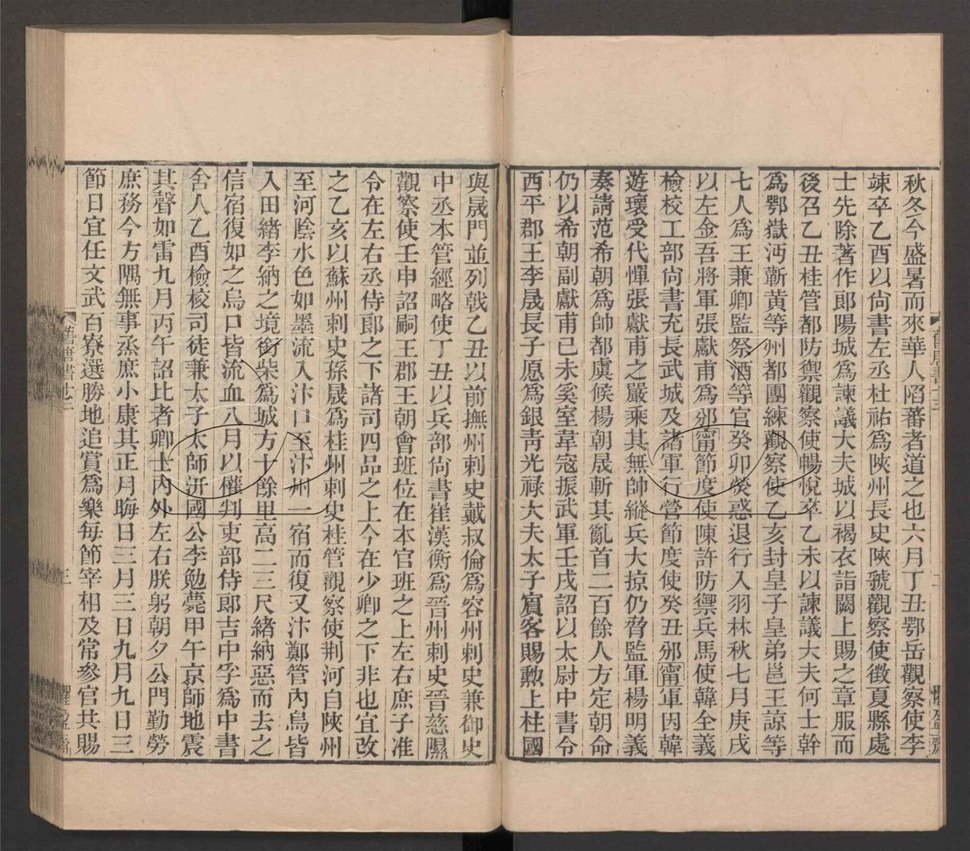 秋冬今盛暑而來華人陷蕃者道之也六月丁丑鄂岳觀察使李
竦卒乙酉以尙書左丞杜祐爲陝州長史陝虢觀察使徵夏縣處
士先除著作郎陽城爲諫議大夫城以褐衣詣闕上賜之章服而
後召乙丑桂管都防禦觀察使暢悅卒乙未以諫議大夫何士幹
爲鄂嶽沔蘄黃等州都團練觀察使乙亥封皇子皇弟邕王諒等
七人爲王兼卿監祭酒等官癸卯熒惑退行入羽林秋七月庚戌
以左金吾將軍張獻甫爲邠甯節度使陳許防禦兵馬使韓全義
檢校工部尙書充長武城及諸軍行營節度使癸丑邠甯軍因韓
遊瓌受代憚張獻甫之嚴乘其無帥縱兵大掠仍脅監軍楊明義
奏請范希朝爲帥都虞候楊朝晟斬其亂首二百餘人方定朝命
仍以希朝副獻甫己未奚室韋寇振武軍壬戌詔以太尉中書令
西平郡王李晟長子愿爲銀靑光祿大夫太子賓客賜勲上柱國
與晟門並列戟乙丑以前撫州刺史戴叔倫爲容州刺史兼御史
中丞本管經略使丁丑以兵部尙書崔漢衡爲晉州刺史晉慈隰
觀察使壬申詔嗣王郡王朝會班位在本官班之上左右庶子准
令在左右丞侍郎之下諸司四品之上今在少卿之下非也宜改
之乙亥以蘇州刺史孫晟爲桂州刺史桂管觀察使荆河自陝州
至河陰水色如墨流入汴口至汴州一宿而復又汴鄭管內烏皆
入田緖李納之境銜柴爲城方十餘里高二三尺緖納惡而去之
信宿復如之烏口皆流血八月以權判吏部侍郎吉中孚爲中書
舍人乙酉檢校司徒兼太子太師汧國公李勉薨甲午京師地震
其聲如雷九月丙午詔比者卿士內外左右朕躬朝夕公門勤勞
庶務今方隅無事烝庶小康其正月晦日三月三日九月九日三
節日宜任文武百寮選勝地追賞爲樂每節宰相及常參官共賜